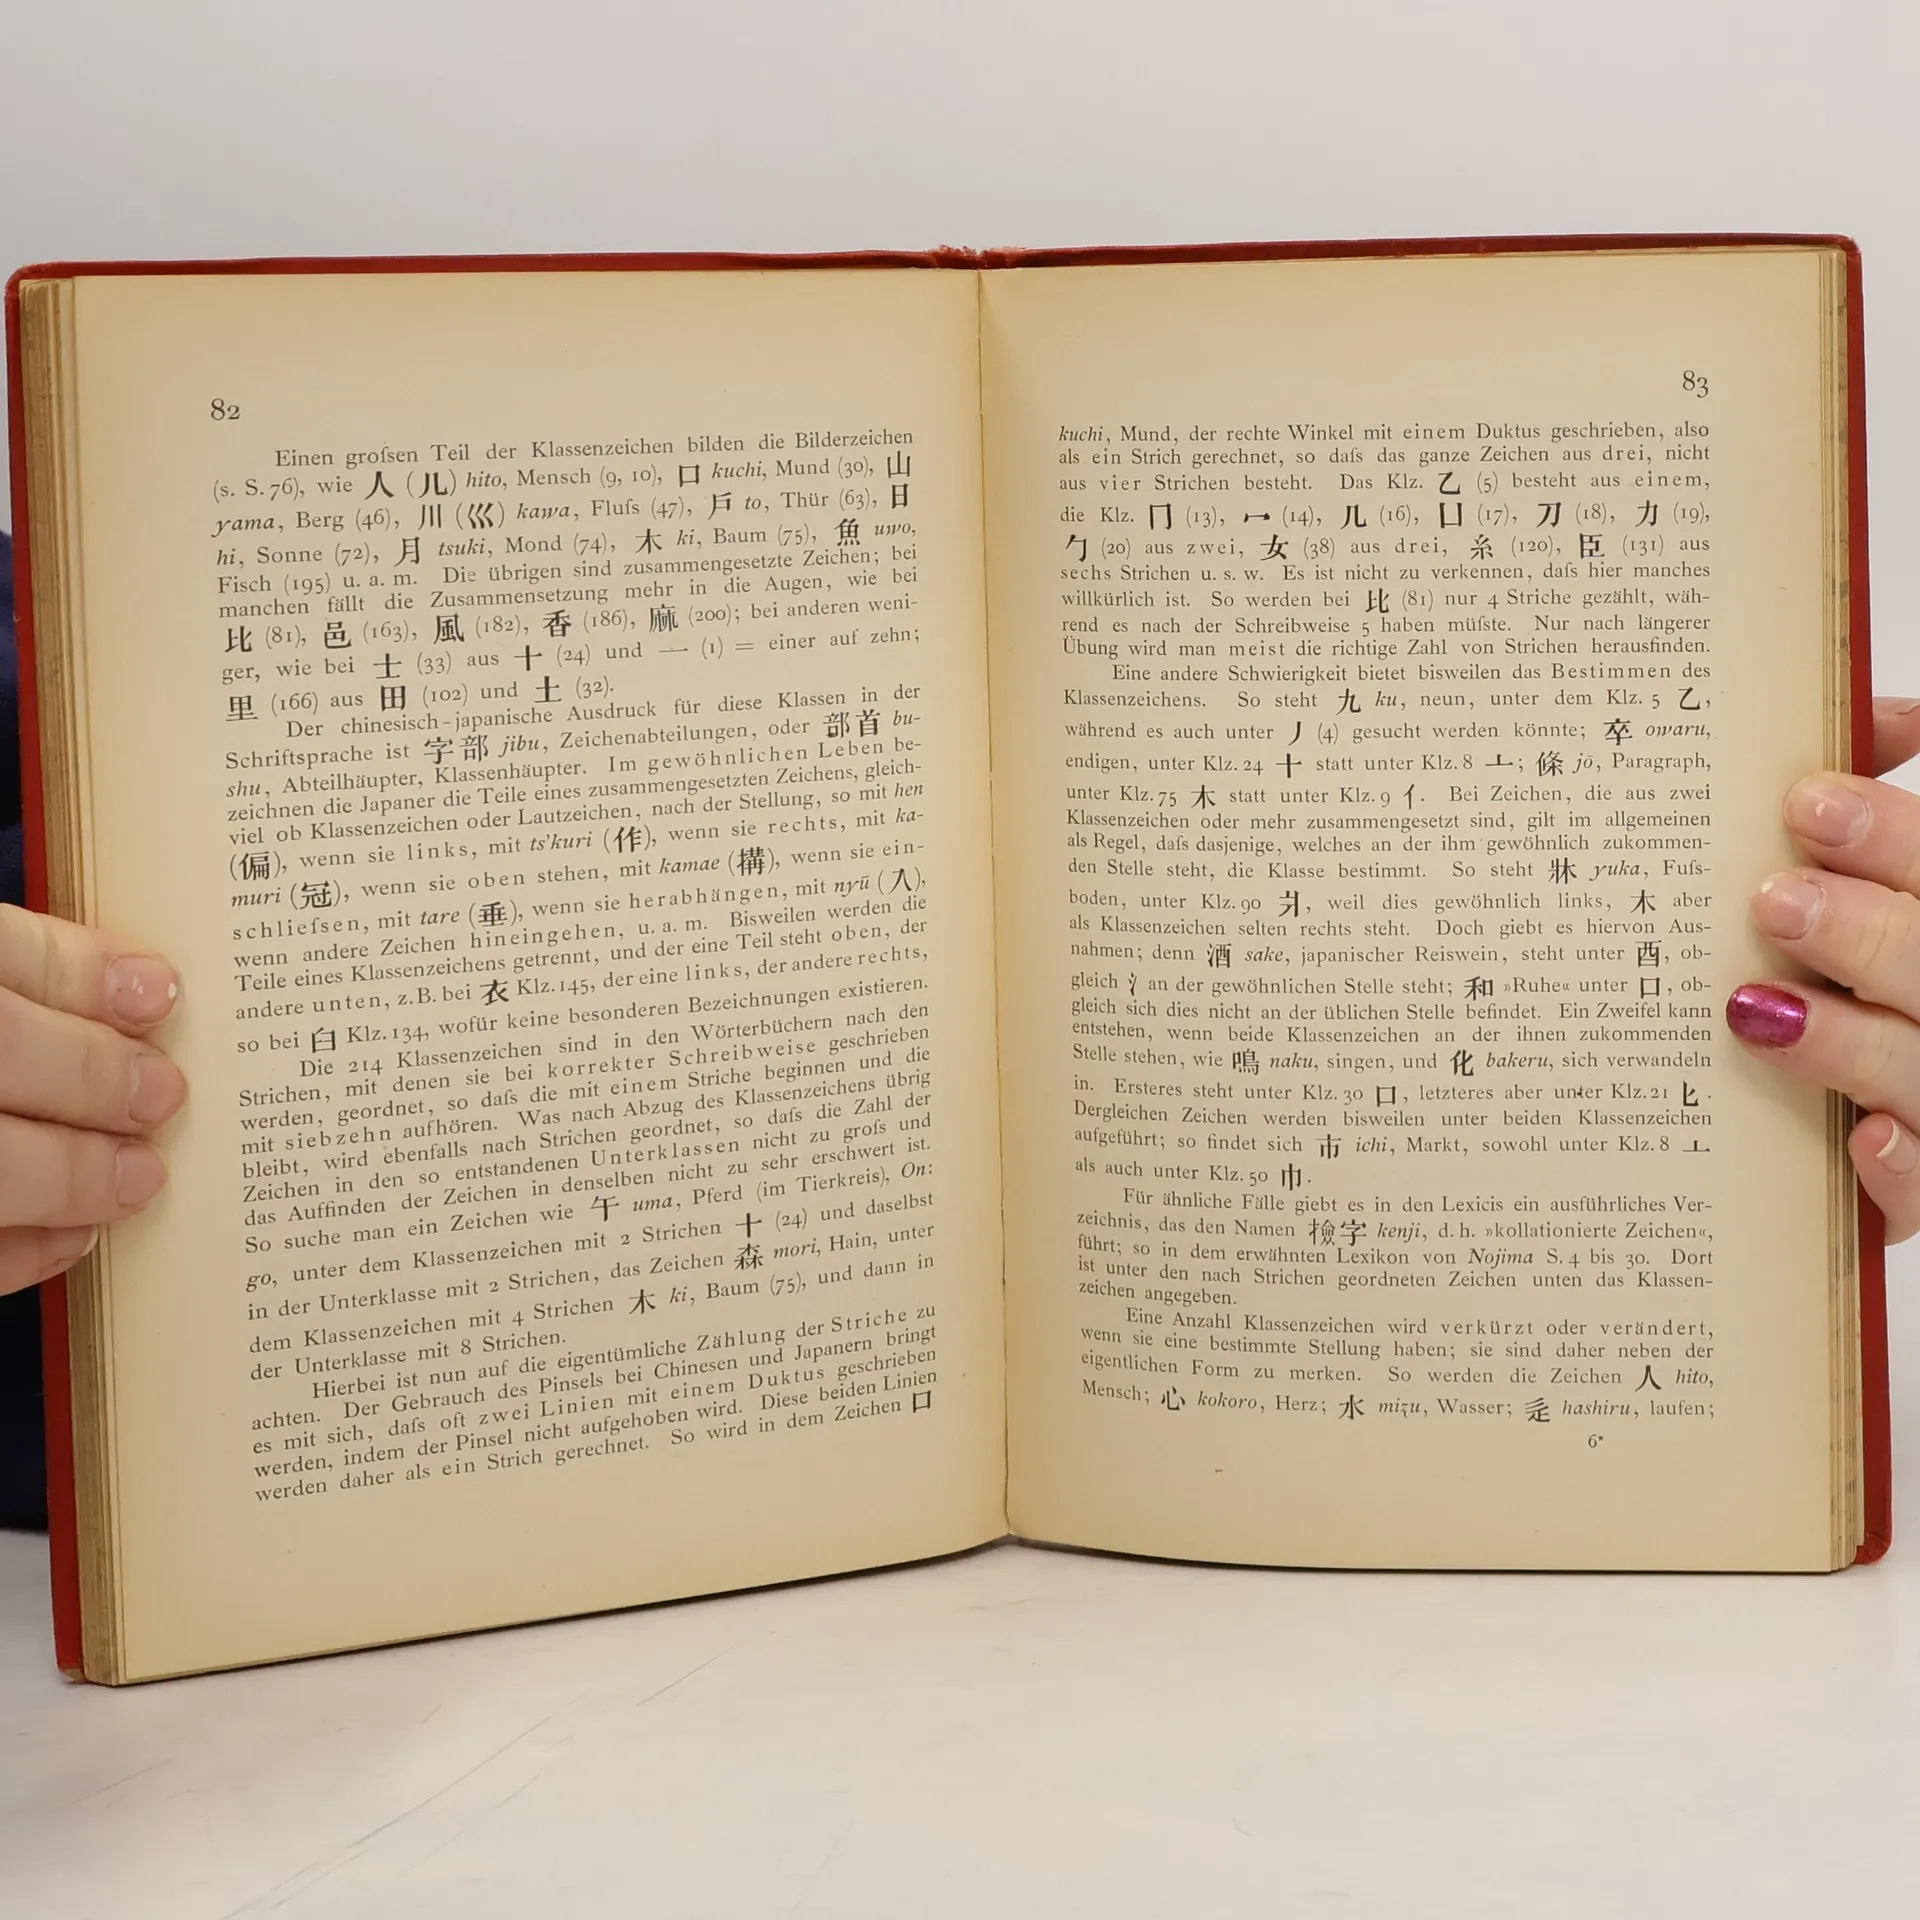 82
Einen groſsen Teil der Klassenzeichen bilden die Bilderzeichen
(s. S. 76), wie 人 (儿) hito, Mensch (9, 10), 口 kuchi, Mund (30), 山
yama, Berg (46), 川 (巛) kawa, Fluſs (47), 戶 to, Thür (63), 日
hi, Sonne (72), 月 tsuki, Mond (74), 木 ki, Baum (75), 魚 uwo,
Fisch (195) u. a. m. Die übrigen sind zusammengesetzte Zeichen; bei
manchen fällt die Zusammensetzung mehr in die Augen, wie bei
比 (81), 邑 (163), 風 (182), 香 (186), 麻 (200); bei anderen weni-
ger, wie bei 士 (33) aus 十 (24) und 一 (1) = einer auf zehn;
里 (166) aus 田 (102) und 土 (32).
Der chinesisch-japanische Ausdruck für diese Klassen in der
Schriftsprache ist 字部 jibu, Zeichenabteilungen, oder 部首 bu-
shu, Abteilhäupter, Klassenhäupter. Im gewöhnlichen Leben be-
zeichnen die Japaner die Teile eines zusammengesetzten Zeichens, gleich-
viel ob Klassenzeichen oder Lautzeichen, nach der Stellung, so mit hen
(偏), wenn sie links, mit ts'kuri (作), wenn sie rechts, mit ka-
muri (冠), wenn sie oben stehen, mit kamae (構), wenn sie ein-
schlieſsen, mit tare (垂), wenn sie herabhängen, mit nyū (入),
wenn andere Zeichen hineingehen, u. a. m. Bisweilen werden die
Teile eines Klassenzeichens getrennt, und der eine Teil steht oben, der
andere unten, z.B. bei 衣 Klz. 145, der eine links, der andere rechts,
so bei 臼 Klz. 134, wofür keine besonderen Bezeichnungen existieren.
Die 214 Klassenzeichen sind in den Wörterbüchern nach den
Strichen, mit denen sie bei korrekter Schreibweise geschrieben
werden, geordnet, so daſs die mit einem Striche beginnen und die
mit siebzehn aufhören. Was nach Abzug des Klassenzeichens übrig
bleibt, wird ebenfalls nach Strichen geordnet, so daſs die Zahl der
Zeichen in den so entstandenen Unterklassen nicht zu groſs und
das Auffinden der Zeichen in denselben nicht zu sehr erschwert ist.
So suche man ein Zeichen wie 午 uma, Pferd (im Tierkreis), On:
go, unter dem Klassenzeichen mit 2 Strichen 十 (24) und daselbst
in der Unterklasse mit 2 Strichen, das Zeichen 森 mori, Hain, unter
dem Klassenzeichen mit 4 Strichen 木 ki, Baum (75), und dann in
der Unterklasse mit 8 Strichen.
Hierbei ist nun auf die eigentümliche Zählung der Striche zu
achten. Der Gebrauch des Pinsels bei Chinesen und Japanern bringt
es mit sich, daſs oft zwei Linien mit einem Duktus geschrieben
werden, indem der Pinsel nicht aufgehoben wird. Diese beiden Linien
werden daher als ein Strich gerechnet. So wird in dem Zeichen 口
83
kuchi, Mund, der rechte Winkel mit einem Duktus geschrieben, also
als ein Strich gerechnet, so daſs das ganze Zeichen aus drei, nicht
aus vier Strichen besteht. Das Klz. 乙 (5) besteht aus einem,
die Klz. 冂 (13), 冖 (14), 几 (16), 凵 (17), 刀 (18), 力 (19),
勹 (20) aus zwei, 女 (38) aus drei, 糸 (120), 臣 (131) aus
sechs Strichen u. s. w. Es ist nicht zu verkennen, daſs hier manches
willkürlich ist. So werden bei 比 (81) nur 4 Striche gezählt, wäh-
rend es nach der Schreibweise 5 haben müſste. Nur nach längerer
Übung wird man meist die richtige Zahl von Strichen herausfinden.
Eine andere Schwierigkeit bietet bisweilen das Bestimmen des
Klassenzeichens. So steht 九 ku, neun, unter dem Klz. 5 乙,
während es auch unter 丿 (4) gesucht werden könnte; 卒 owaru,
endigen, unter Klz. 24 十 statt unter Klz. 8 亠; 條 jō, Paragraph,
unter Klz. 75 木 statt unter Klz. 9 亻. Bei Zeichen, die aus zwei
Klassenzeichen oder mehr zusammengesetzt sind, gilt im allgemeinen
als Regel, daſs dasjenige, welches an der ihm gewöhnlich zukommen-
den Stelle steht, die Klasse bestimmt. So steht 牀 yuka, Fuſs-
boden, unter Klz. 90 爿, weil dies gewöhnlich links, 木 aber
als Klassenzeichen selten rechts steht. Doch giebt es hiervon Aus-
nahmen; denn 酒 sake, japanischer Reiswein, steht unter 酉, ob-
gleich 氵 an der gewöhnlichen Stelle steht; 和 »Ruhe« unter 口, ob-
gleich sich dies nicht an der üblichen Stelle befindet. Ein Zweifel kann
entstehen, wenn beide Klassenzeichen an der ihnen zukommenden
Stelle stehen, wie 鳴 naku, singen, und 化 bakeru, sich verwandeln
in. Ersteres steht unter Klz. 30 口, letzteres aber unter Klz. 21 匕.
Dergleichen Zeichen werden bisweilen unter beiden Klassenzeichen
aufgeführt; so findet sich 市 ichi, Markt, sowohl unter Klz. 8 亠
als auch unter Klz. 50 巾.
Für ähnliche Fälle giebt es in den Lexicis ein ausführliches Ver-
zeichnis, das den Namen 撿字 kenji, d. h. »kollationierte Zeichen«,
führt; so in dem erwähnten Lexikon von Nojima S. 4 bis 30. Dort
ist unter den nach Strichen geordneten Zeichen unten das Klassen-
zeichen angegeben.
Eine Anzahl Klassenzeichen wird verkürzt oder verändert,
wenn sie eine bestimmte Stellung haben; sie sind daher neben der
eigentlichen Form zu merken. So werden die Zeichen 人 hito,
Mensch; 心 kokoro, Herz; 水 mizu, Wasser; 辵 hashiru, laufen;
6*